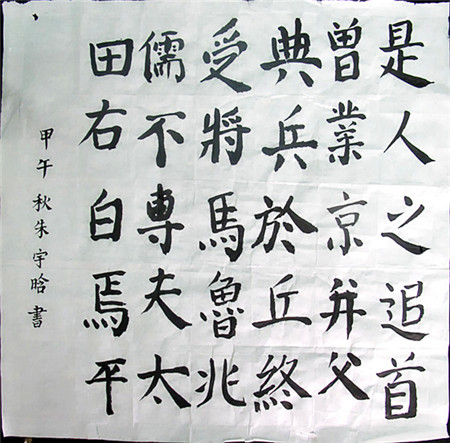 是人之追首
曾業京并父
典兵於丘終
受將馬魯兆
儒不專夫太
田右白焉平
甲午秋朱宇晗書